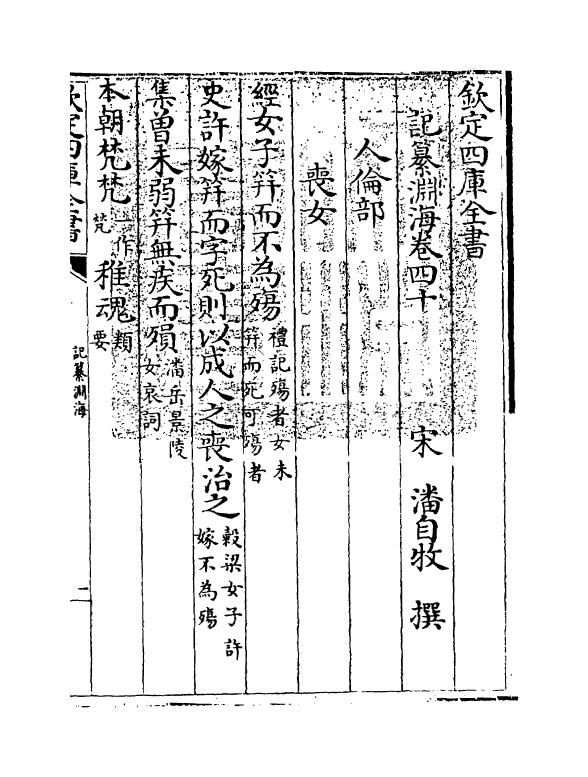 欽定四庫全書
記纂淵海卷四十
宋 潘自牧 撰
人倫部
喪女
經女子笄而不為殤禮記殤者女未笄而死可殤者
史許嫁笄而字死則以成人之喪治之穀梁女子許嫁不為殤
集曾未弱笄無疾而殞潘岳景陵女哀詞
本朝梵梵一作梵稚魂類要
欽定四庫全書
記纂淵海
二